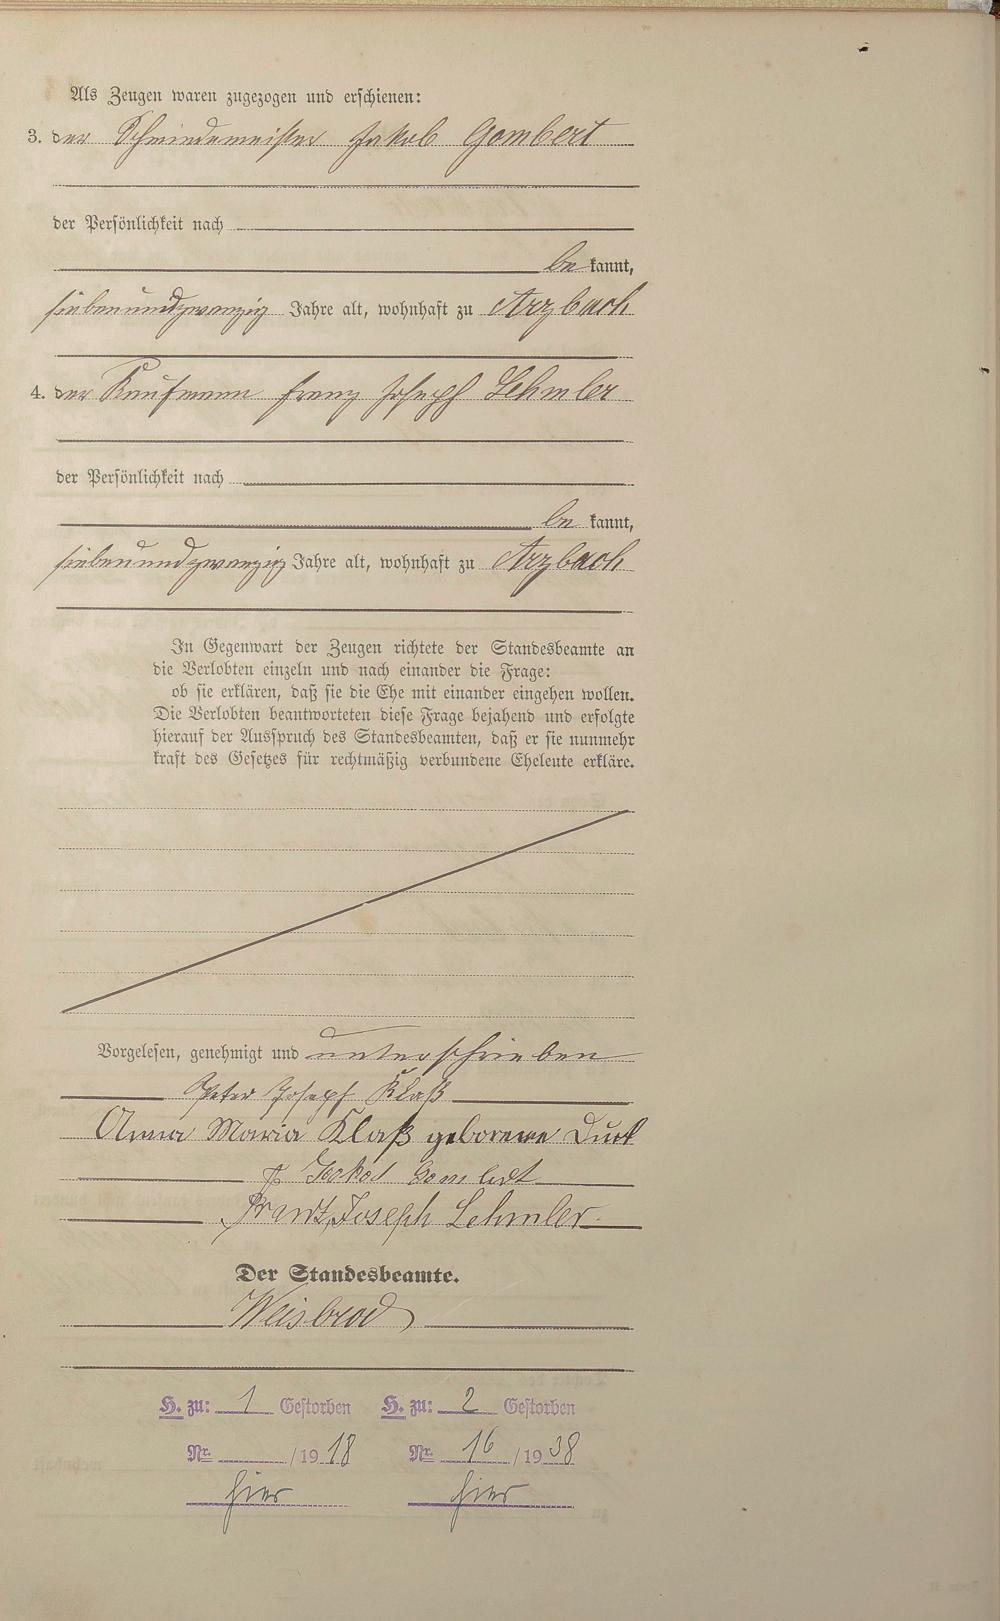 Als Zeugen waren zugezogen und erschienen:
3. der Schmiedemeister Jakob Gombert
der Persönlichkeit nach
be kannt,
siebenundzwanzig Jahre alt, wohnhaft zu Arzbach
4. der Kaufmann Franz Joseph Lehmler
der Persönlichkeit nach
be kannt,
siebenundzwanzig Jahre alt, wohnhaft zu Arzbach
In Gegenwart der Zeugen richtete der Standesbeamte an
die Verlobten einzeln und nach einander die Frage:
ob sie erklären, daß sie die Ehe mit einander eingehen wollen.
Die Verlobten beantworteten diese Frage bejahend und erfolgte
hierauf der Ausspruch des Standesbeamten, daß er sie nunmehr
kraft des Gesetzes für rechtmäßig verbundene Eheleute erkläre.
Vorgelesen, genehmigt und unterschrieben
Peter Joseph Klaß
Anna Maria Klaß geborene
Jakob Gombert
Franz Joseph Lehmler
Der Standesbeamte.
Weisbrod
H. zu: 1 Gestorben H. zu: 2 Gestorben
Nr. /19 18 Nr. 16 /19 38
hier hier